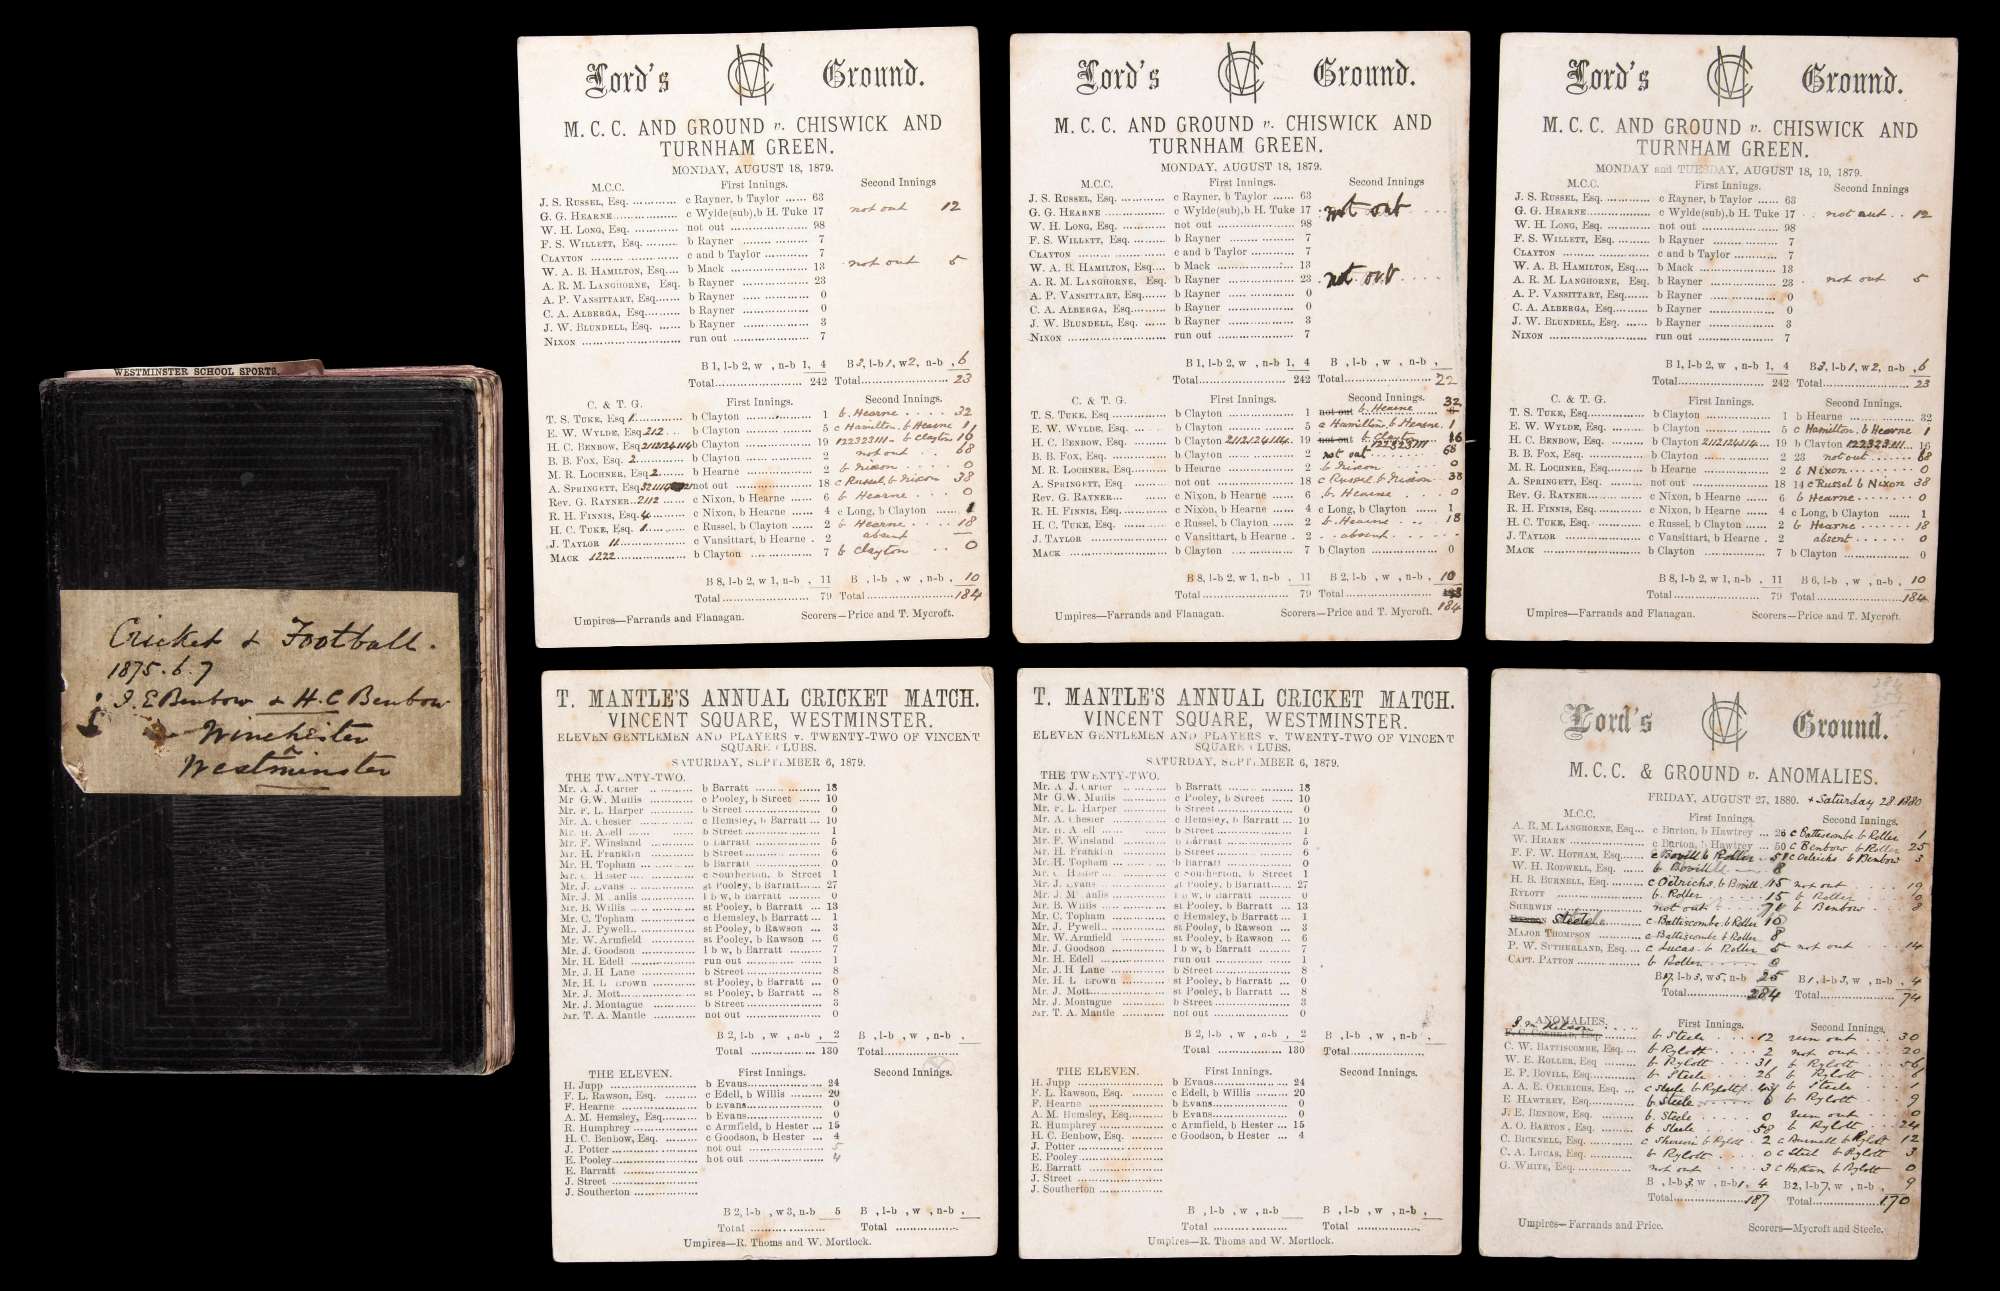 WESTMINSTER SCHOOL SPORTS.
Cricket & Football.
1875.6.7
J. E Benbow & H. C Benbow
Winchester
Westminster
Lord's MCC Ground.
M. C. C. AND GROUND v. CHISWICK AND
TURNHAM GREEN.
MONDAY, AUGUST 18, 1879.
M.C.C. First Innings. Second Innings
J. S. RUSSEL, Esq. c Rayner, b Taylor 63
G. G. HEARNE c Wylde(sub), b H. Tuke 17 not out 12
W. H. LONG, Esq. not out 98
F. S. WILLETT, Esq. b Rayner 7
CLAYTON c and b Taylor 7
W. A. B. HAMILTON, Esq. b Mack 13 not out 5
A. R. M. LANGHORNE, Esq. b Rayner 23
A. P. VANSITTART, Esq. b Rayner 0
C. A. ALBERGA, Esq. b Rayner 0
J. W. BLUNDELL, Esq. b Rayner 3
NIXON run out 7
B 1, l-b 2, w , n-b 1, 4 B 3, l-b 1, w 2, n-b , 6
Total 242 Total 23
C. & T. G. First Innings. Second Innings.
T. S. TUKE, Esq 1 b Clayton 1 b. Hearne 32
E. W. WYLDE, Esq. 212 b Clayton 5 c Hamilton, b Hearne 1
H. C. BENBOW, Esq. b Clayton 19 122323111 b Clayton 16
B. B. FOX, Esq. 2 b Clayton 2 not out 68
M. R. LOCHNER, Esq. 2 b Hearne 2 b Nixon 0
A. SPRINGETT, Esq. not out 18 c Russel, b Nixon 38
REV. G. RAYNER 2112 c Nixon, b Hearne 6 b Hearne 0
R. H. FINNIS, Esq. 4 c Nixon, b Hearne 4 c Long, b Clayton 1
H. C. TUKE, Esq. 1 c Russel, b Clayton 2 b Hearne 18
J. TAYLOR 11 c Vansittart, b Hearne 2 absent
MACK 1222 b Clayton 7 b Clayton 0
B 8, l-b 2, w 1, n-b , 11 B , l-b , w , n-b , 10
Total 79 Total 184
Umpires—Farrands and Flanagan. Scorers—Price and T. Mycroft.
Lord's MCC Ground.
M. C. C. AND GROUND v. CHISWICK AND
TURNHAM GREEN.
MONDAY, AUGUST 18, 1879.
M.C.C. First Innings. Second Innings
J. S. RUSSEL, Esq. c Rayner, b Taylor 63
G. G. HEARNE c Wylde(sub), b H. Tuke 17 not out
W. H. LONG, Esq. not out 98
F. S. WILLETT, Esq. b Rayner 7
CLAYTON c and b Taylor 7
W. A. B. HAMILTON, Esq. b Mack 13
A. R. M. LANGHORNE, Esq. b Rayner 23 not out
A. P. VANSITTART, Esq. b Rayner 0
C. A. ALBERGA, Esq. b Rayner 0
J. W. BLUNDELL, Esq. b Rayner 3
NIXON run out 7
B 1, l-b 2, w , n-b 1, 4 B , l-b , w , n-b ,
Total 242 Total 22
C. & T. G. First Innings. Second Innings. 32
T. S. TUKE, Esq. b Clayton 1 not out b. Hearne
E. W. WYLDE, Esq. b Clayton 5 c Hamilton, b Hearne 1
H. C. BENBOW, Esq. b Clayton 2112124114 19 not out b. Clayton 122323111 16
B. B. FOX, Esq. b Clayton 2 not out 68
M. R. LOCHNER, Esq. b Hearne 2 b Nixon 0
A. SPRINGETT, Esq not out 18 c Russel b Nixon 38
REV. G. RAYNER c Nixon, b Hearne 6 b. Hearne 0
R. H. FINNIS, Esq. c Nixon, b Hearne 4 c Long, b Clayton 1
H. C. TUKE, Esq. c Russel, b Clayton 2 b. Hearne 18
J. TAYLOR c Vansittart, b Hearne 2 absent
MACK b Clayton 7 b Clayton 0
B 8, l-b 2, w 1, n-b , 11 B 2, l-b , w , n-b , 10
Total 79 Total
184
Umpires—Farrands and Flanagan. Scorers—Price and T. Mycroft.
Lord's MCC Ground.
M. C. C. AND GROUND v. CHISWICK AND
TURNHAM GREEN.
MONDAY and TUESDAY, AUGUST 18, 19, 1879.
M.C.C. First Innings. Second Innings
J. S. RUSSEL, Esq. c Rayner, b Taylor 63
G. G. HEARNE c Wylde(sub), b H. Tuke 17 not out 12
W. H. LONG, Esq. not out 98
F. S. WILLETT, Esq. b Rayner 7
CLAYTON c and b Taylor 7
W. A. B. HAMILTON, Esq. b Mack 13
A. R. M. LANGHORNE, Esq. b Rayner 23 not out 5
A. P. VANSITTART, Esq. b Rayner 0
C. A. ALBERGA, Esq. b Rayner 0
J. W. BLUNDELL, Esq. b Rayner 3
NIXON run out 7
B 1, l-b 2, w , n-b 1, 4 B 3, l-b 1, w 2, n-b , 6
Total 242 Total 23
C. & T. G. First Innings. Second Innings.
T. S. TUKE, Esq. b Clayton 1 b Hearne 32
E. W. WYLDE, Esq. b Clayton 5 c Hamilton, b Hearne 1
H. C. BENBOW, Esq. b Clayton 2112124114 19 b Clayton 122323111 16
B. B. FOX, Esq. b Clayton 2 23 not out 68
M. R. LOCHNER, Esq. b Hearne 2 b Nixon 0
A. SPRINGETT, Esq. not out 18 14 c Russel b Nixon 38
REV. G. RAYNER c Nixon, b Hearne 6 b Hearne 0
R. H. FINNIS, Esq. c Nixon, b Hearne 4 c Long, b Clayton 1
H. C. TUKE, Esq. c Russel, b Clayton 2 b Hearne 18
J. TAYLOR c Vansittart, b Hearne 2 absent 0
MACK b Clayton 7 b Clayton 0
B 8, l-b 2, w 1, n-b , 11 B 6, l-b , w , n-b , 10
Total 79 Total 184
Umpires—Farrands and Flanagan. Scorers—Price and T. Mycroft.
T. MANTLE'S ANNUAL CRICKET MATCH.
VINCENT SQUARE, WESTMINSTER.
ELEVEN GENTLEMEN AND PLAYERS v. TWENTY-TWO OF VINCENT
SQUARE CLUBS.
SATURDAY, SEPTEMBER 6, 1879.
THE TWENTY-TWO.
Mr. A. J. Carter b Barratt 18
Mr G.W. Mullis c Pooley, b Street 10
Mr. F. L. Harper b Street 0
Mr. A. Chester c Hemsley, b Barratt 10
Mr. H. b Street 1
Mr. F. Winsland b Barratt 5
Mr. H. Franklin b Street 6
Mr. H. Topham b Barratt 0
Mr. C. Hester c Southerton, b Street 1
Mr. J. Evans st Pooley, b Barratt 27
Mr. J. M anlis l b w, b Barratt 0
Mr. B. Willis st Pooley, b Barratt 13
Mr. C. Topham c Hemsley, b Barratt 1
Mr. J. Pywell st Pooley, b Rawson 3
Mr. W. Armfield st Pooley, b Rawson 6
Mr. J. Goodson l b w, b Barratt 7
Mr. H. Edell run out 1
Mr. J. H. Lane b Street 8
Mr. H. L. Brown st Pooley, b Barratt 0
Mr. J. Mott st Pooley, b Barratt 8
Mr. J. Montague b Street 3
Mr. T. A. Mantle not out 0
B 2, l-b , w , n-b , 2 B , l-b , w , n-b ,
Total 130 Total
THE ELEVEN. First Innings. Second Innings.
H. Jupp b Evans 24
F. L. Rawson, Esq. c Edell, b Willis 20
F. Hearne b Evans 0
A. M. Hemsley, Esq. b Evans 0
R. Humphrey c Armfield, b Hester 15
H. C. Benbow, Esq. c Goodson, b Hester 4
J. Potter not out 5
E. Pooley not out 4
E. Barratt
J. Street
J. Southerton
B 2, l-b , w 3, n-b 5 B , l-b , w , n-b ,
Total Total
Umpires—R. Thoms and W. Mortlock.
T. MANTLE'S ANNUAL CRICKET MATCH.
VINCENT SQUARE, WESTMINSTER.
ELEVEN GENTLEMEN AND PLAYERS v. TWENTY-TWO OF VINCENT
SQUARE CLUBS.
SATURDAY, SEPTEMBER 6, 1879.
THE TWENTY-TWO.
Mr. A. J. Carter b Barratt 18
Mr G.W. Mullis c Pooley, b Street 10
Mr. F. L. Harper b Street 0
Mr. A. Chester c Hemsley, b Barratt 10
Mr. H. b Street 1
Mr. F. Winsland b Barratt 5
Mr. H. Franklin b Street 6
Mr. H. Topham b Barratt 0
Mr. C. Hester c Southerton, b Street 1
Mr. J. Evans st Pooley, b Barratt 27
Mr. J. M anlis l b w, b Barratt 0
Mr. B. Willis st Pooley, b Barratt 13
Mr. C. Topham c Hemsley, b Barratt 1
Mr. J. Pywell st Pooley, b Rawson 3
Mr. W. Armfield st Pooley, b Rawson 6
Mr. J. Goodson l b w, b Barratt 7
Mr. H. Edell run out 1
Mr. J. H Lane b Street 8
Mr. H. L Brown st Pooley, b Barratt 0
Mr. J. Mott st Pooley, b Barratt 8
Mr. J. Montague b Street 3
Mr. T. A. Mantle not out 0
B 2, l-b , w , n-b , 2 B , l-b , w , n-b ,
Total 130 Total
THE ELEVEN. First Innings. Second Innings.
H. Jupp b Evans 24
F. L. Rawson, Esq. c Edell, b Willis 20
F. Hearne b Evans 0
A. M. Hemsley, Esq. b Evans 0
R. Humphrey c Armfield, b Hester 15
H. C. Benbow, Esq. c Goodson, b Hester 4
J. Potter
E. Pooley
E. Barratt
J. Street
J. Southerton
B , l-b , w , n-b B , l-b , w , n-b ,
Total Total
Umpires—R. Thoms and W. Mortlock.
Lord's MCC Ground.
M. C. C. & GROUND v. ANOMALIES.
FRIDAY, AUGUST 27, 1880. + Saturday 28. 1880
M.C.C. First Innings. Second Innings.
A. R. M. LANGHORNE, Esq. c Burton, b Hawtrey 26 c Battiscombe b Roller 1
W. HEARN c Burton, b Hawtrey 50 c Benbow b Roller 25
F. F. W. HOTHAM, Esq. c Bovill b Roller 51 c Oelrichs b Benbow 3
W. H. RODWELL, Esq. b Bovill 8
H. B. BURNELL, Esq. c Oelrichs, b Bovill 15 not out 19
RYLOTT b. Roller 15 b Roller 0
SHERWIN not out 71 b Benbow 8
Steele c Battiscombe. b Roller 10
MAJOR THOMPSON c Battiscombe b Roller 8
P. W. SUTHERLAND, Esq. c Lucas b Roller 5 not out 14
CAPT. PATTON b Roller 0
B 17, l-b 3, w 5, n-b 25 B 1, l-b 3, w , n-b , 4
Total 284 Total 74
ANOMALIES. First Innings. Second Innings.
b Steele 12 run out 30
C. W. BATTISCOMBE, Esq. b Rylott 2 not out 20
W. E. ROLLER, Esq b Rylott 31 b Rylott 56
E. P. BOVILL, Esq. b Steele 26 b Rylott 6
A. A. E. OELRICHS, Esq. c Steele b Rylott b Steele 1
E HAWTREY, Esq. b Steele 6 b Rylott 9
J. E. BENBOW, Esq. b. Steele 0 run out 0
A. O. BARTON, Esq. b Steele 58 b Rylott 24
C. BICKNELL, Esq. c Sherwin b Rylott 2 c Burnell b Rylott 12
C. A. LUCAS, Esq. b Rylott 0 c Steel b Rylott 3
G. WHITE, Esq. not out 3 c Hotham b Rylott 0
B , l-b 3, w , n-b 1, 4 B 2, l-b 7, w , n-b , 9
Total 187 Total 170
Umpires—Farrands and Price. Scorers—Mycroft and Steele.